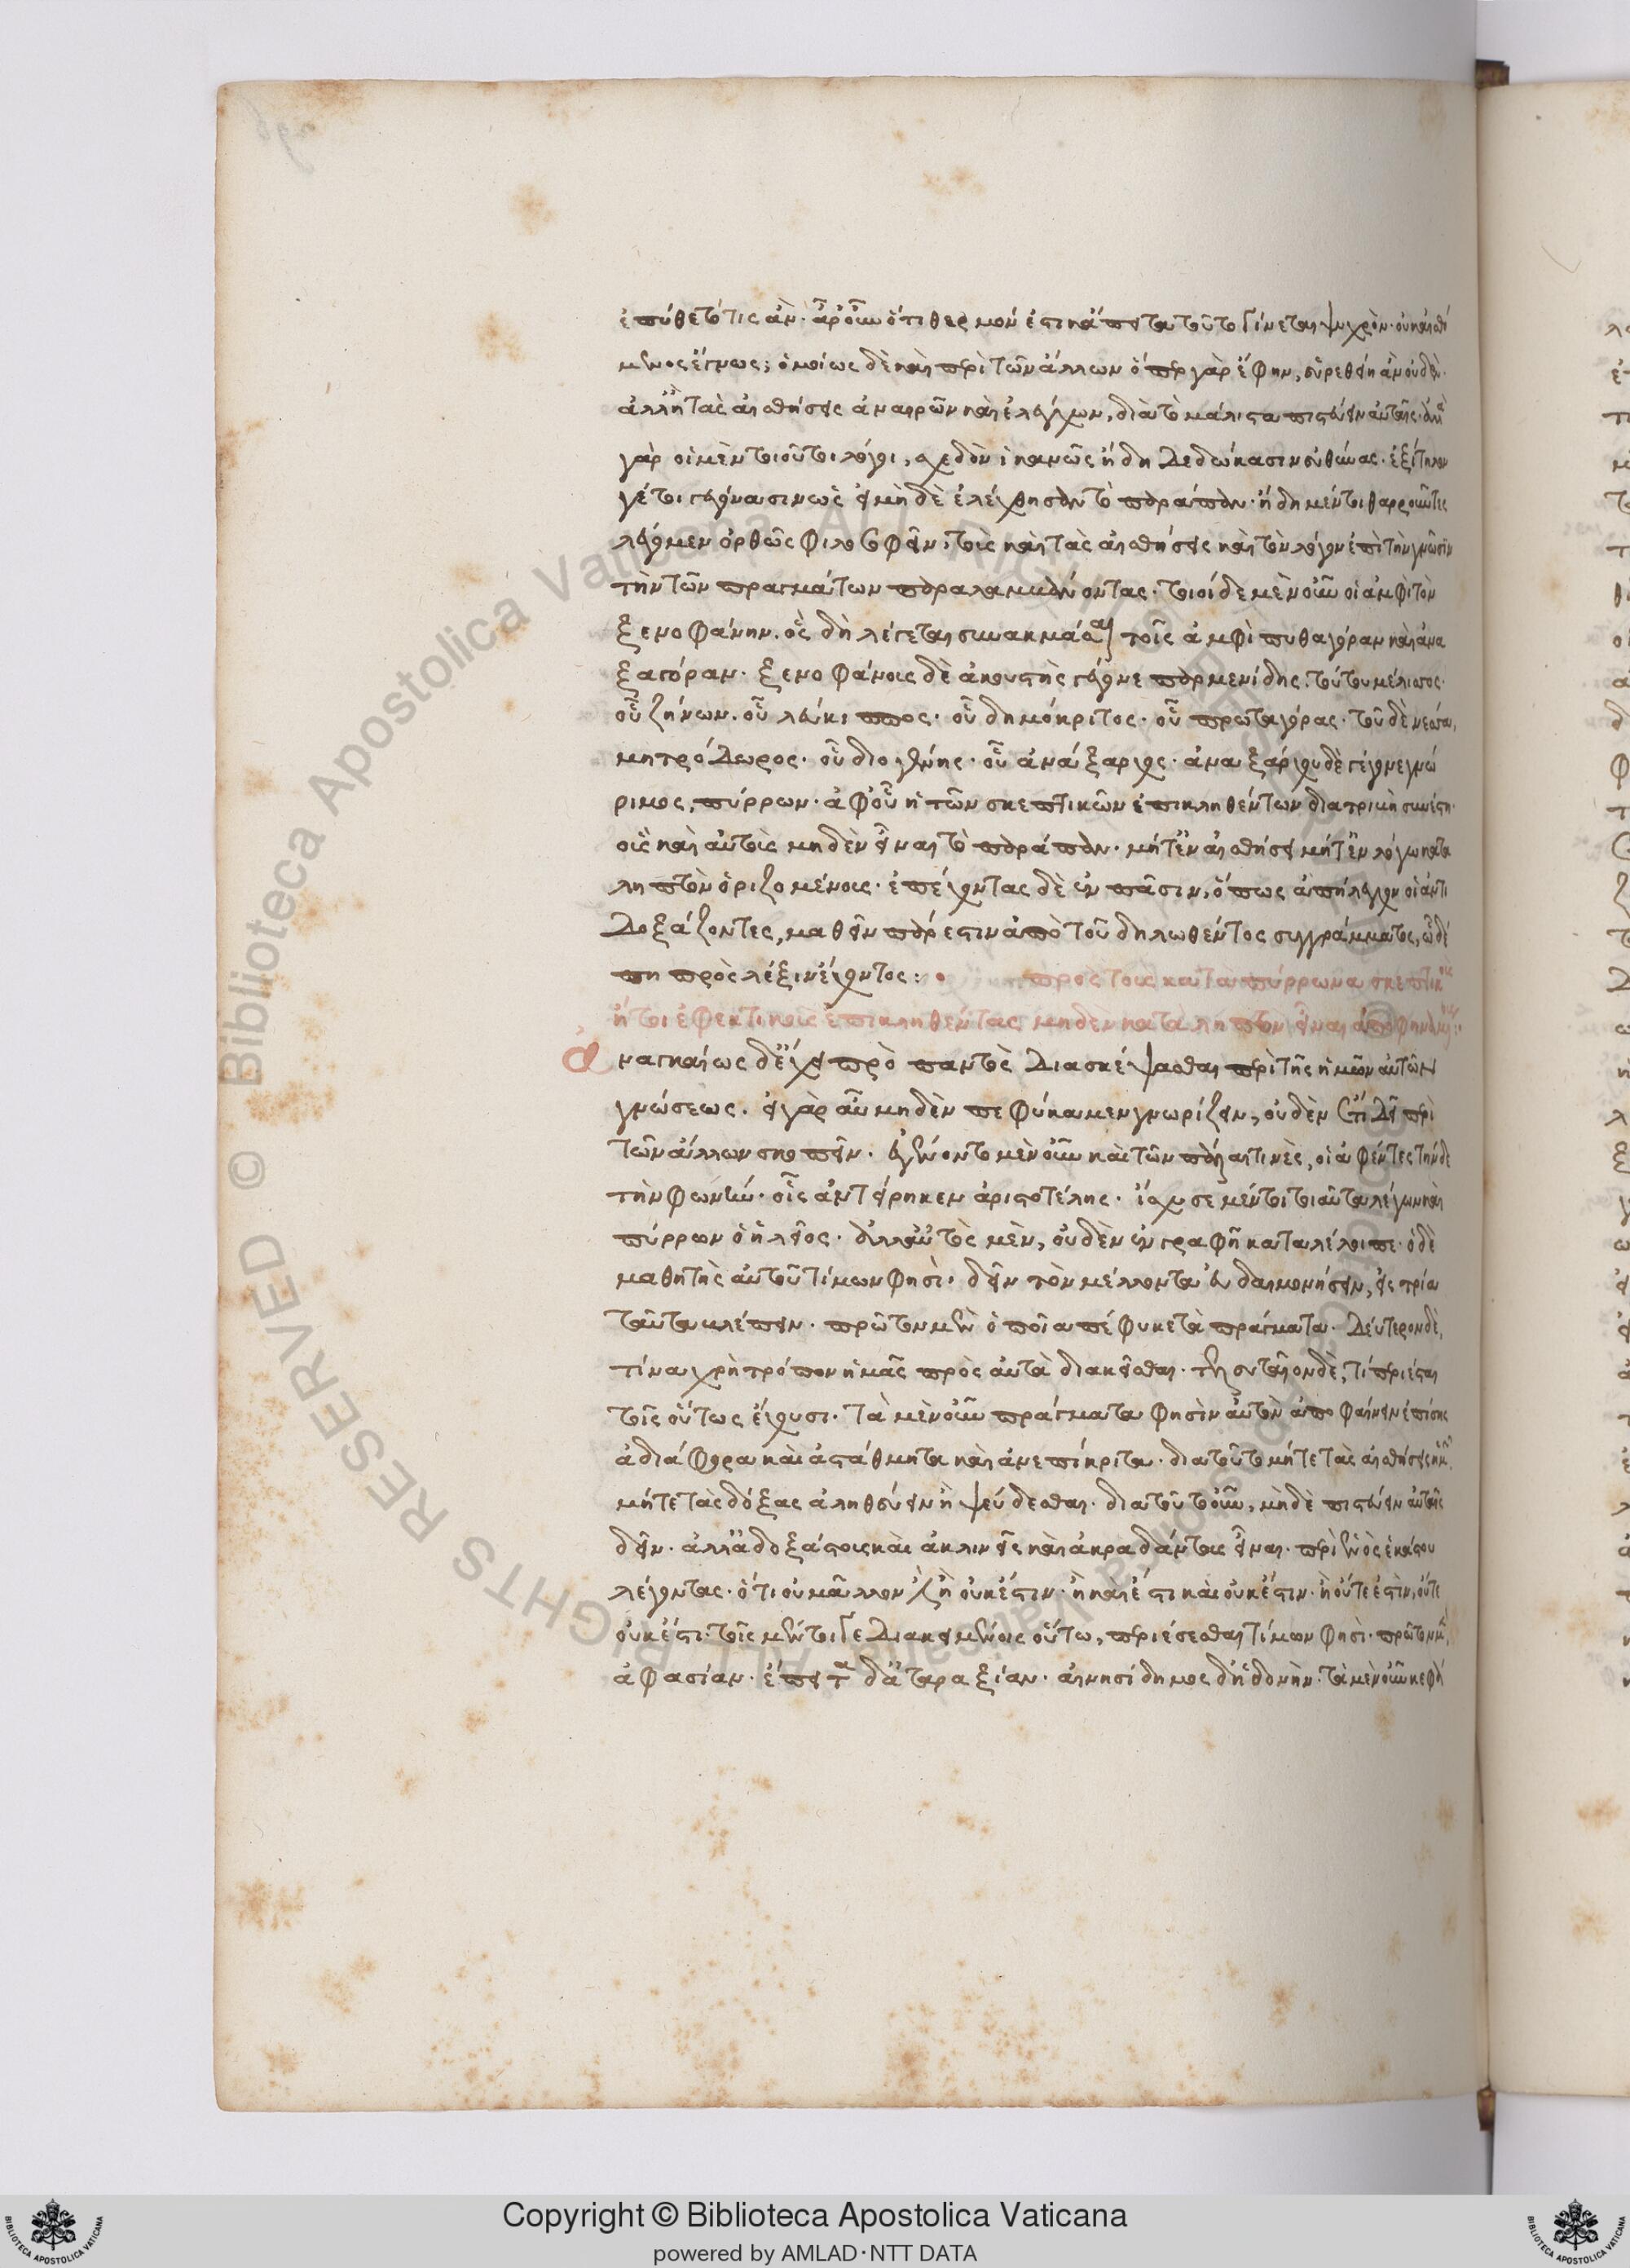 ἐπύθετό τις ἄν· ἆρ' οὖν ὅτι θερμόν ἐστι κἄπειτα τοῦτο γίνεται ψυχρὸν· οὐκ αἰσθό
μενος ἔγνως; ὁμοίως δὲ καὶ περὶ τῶν ἄλλων ὅπερ γὰρ ἔφην, εὑρεθείη ἂν οὐδὲν
ἀλλ' ἢ τὰς αἰσθήσεις ἀναιρῶν καὶ ἐλέγχων, διὰ τὸ μάλιστα πιστεύειν αὐταῖς·
γὰρ οἱ μὲν τοιοῦτοι λόγοι, σχεδὸν ἱκανῶς ἤδη δεδώκασιν εὐθύνας· ἐξίτηλοι
γέ τοι γεγόνασιν ὡς εἰ μηδὲ ἐλέχθησαν τὸ παράπαν· ἤδη μέντοι θαρροῦντες
λέγομεν ὀρθῶς φιλοσοφεῖν, τοῖς καὶ τὰς αἰσθήσεις καὶ τὸν λόγον ἐπὶ τὴν γνῶσιν
τὴν τῶν πραγμάτων παραλαμβάνοντας· τοιοίδε μὲν οὖν οἱ ἀμφὶ τὸν
ξενοφάνην· ὃς δὴ λέγεται συνακμάσαι τοῖς ἀμφὶ πυθαγόραν καὶ ἀνα
ξαγόραν· ξενοφάνους δὲ ἀκουστὴς γέγονε παρμενίδης· τούτου μέλισσος·
οὗ ζήνων· οὗ λεύκιππος· οὗ δημόκριτος· οὗ πρωταγόρας· τοῦ δὲ νεσσᾶ,
μητρόδωρος· οὗ διογένης· οὗ ἀνάξαρχος· ἀναξάρχου δὲ γέγονε γνώ
ριμος, πύρρων· ἀφ' οὗ ἡ τῶν σκεπτικῶν ἐπικληθέντων διατριβὴ συνέστη·
οὓς καὶ αὐτοὺς μηδὲν εἶναι τὸ παράπαν· μήτ' ἐν αἰσθήσει μήτ' ἐν λόγω κατα
ληπτὸν ὁριζομένους· ἐπέχοντας δὲ ἐν πᾶσιν, ὅπως ἀπήλεγχον οἱ ἀντι
δοξάζοντες, μαθεῖν πάρεστιν ἀπὸ τοῦ δηλωθέντος συγγράμματος, ὧδέ
πη πρὸς λέξιν ἔχοντος:
πρὸς τοὺς κατὰ πύρρωνα σκεπτικοὺς
ἤτοι ἐφεκτικοὺς ἐπικληθέντας μηδὲν καταληπτὸν εἶναι ἀποφηναμένους:
Ἀναγκαίως δ' ἔχει πρὸ παντὸς διασκέψασθαι περὶ τῆς ἡμῶν αὐτῶν
γνώσεως· εἰ γὰρ αὖ μηδὲν πεφύκαμεν γνωρίζειν, οὐδὲν ἔτι δεῖ περὶ
τῶν ἄλλων σκοπεῖν· ἐγένοντο μὲν οὖν καὶ τῶν πάλαι τινὲς, οἱ ἀφέντες τήνδε
τὴν φωνήν· οἷς ἀντείρηκεν ἀριστοτέλης· ἴσχυσε μέντοι τοιαῦτα λέγων καὶ
πύρρων ὁ ἠλεῖος· ἀλλ' αὐτὸς μὲν, οὐδὲν ἐν γραφῆ καταλέλοιπε· ὁ δὲ
μαθητὴς αὐτοῦ τίμων φησὶ· δεῖν τὸν μέλλοντα εὐδαιμονήσειν, εἰς τρία
ταῦτα βλέπειν· πρῶτον μὲν ὁποῖα πέφυκε τὰ πράγματα· δεύτερον δὲ,
τίνα χρὴ τρόπον ἡμᾶς πρὸς αὐτὰ διακεῖσθαι· τελευταῖον δὲ, τί περιέσται
τοῖς οὕτως ἔχουσι· τὰ μὲν οὖν πράγματα φησὶν αὐτὸν ἀποφαίνειν ἐπίσης
ἀδιάφορα καὶ ἀστάθμητα καὶ ἀνεπίκριτα· διὰ τοῦτο μήτε τὰς αἰσθήσεις ἡμῶν
μήτε τὰς δόξας ἀληθεύειν ἢ ψεύδεσθαι· διὰ τοῦτο οὖν, μηδὲ πιστεύειν αὐταῖς
δεῖν· ἀλλ' ἀδοξάστους καὶ ἀκλινεῖς καὶ ἀκραδάντους εἶναι· περὶ ἑνὸς ἑκάστου
λέγοντας· ὅτι οὐ μᾶλλον ἔστιν ἢ οὐκ ἔστιν· ἢ καὶ ἔστι καὶ οὐκ ἔστιν· ἢ οὔτε ἐστὶν, οὔτε
οὐκ ἔστι· τοῖς μέντοι γε διακειμένοις οὕτω, περιέσεσθαι τίμων φησὶ· πρῶτον μὲν,
ἀφασίαν· ἔπειτα δ' ἀταραξίαν· αἰνησίδημος δ' ἡδονὴν· τὰ μὲν οὖν κεφά